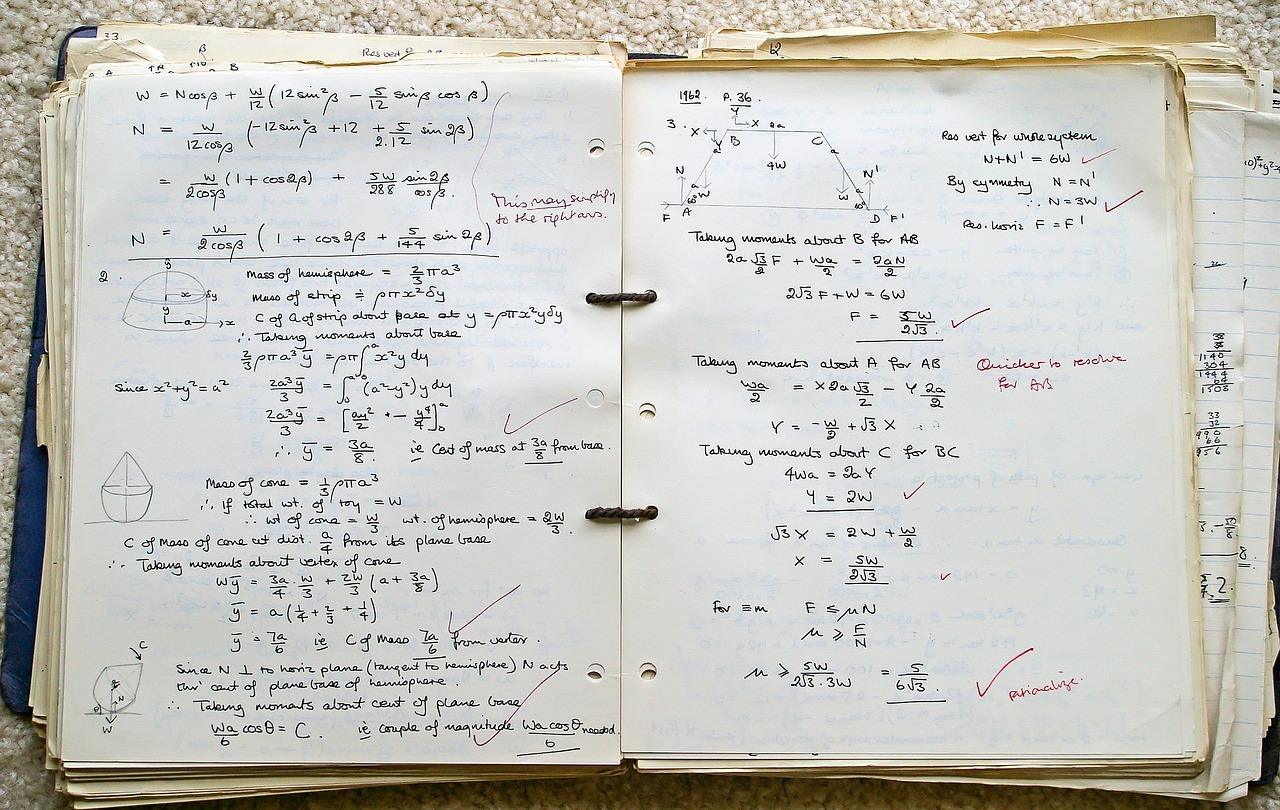 33.
β
Res vert
B
W = Ncosβ + W/12 (12sin²β − 5/12 sinβ cosβ)
N = W/12cosβ (−12sin²β + 12 + 5/2.12 sin2β)
= W/2cosβ (1 + cos2β) + 5W/288 sin2β/cosβ.
This may simplify
to the right ans.
N = W/2cosβ (1 + cos2β + 5/144 sin2β)
2.
y
x δy
y
a x
Mass of hemisphere = 2/3 πa³
Mass of strip ≑ ρπx²δy
C of G of strip about base at y = ρπx²yδy
∴ Taking moments about base
2/3 ρπa³ȳ = ρπ∫₀ᵃ x²y dy
Since x²+y²=a² 2a³ȳ/3 = ∫₀ᵃ (a²−y²)y dy
2a³ȳ/3 = [ay²/2 − y⁴/4]₀ᵃ
∴ ȳ = 3a/8 ie Cent of mass at 3a/8 from base.
Mass of cone = 1/3 ρπa³
∴ If total wt. of toy = W
∴ wt of cone = W/3 wt. of hemisphere = 2W/3.
C of Mass of cone at dist. a/4 from its plane base
∴ Taking moments about vertex of cone
Wȳ = 3a/4 · W/3 + 2W/3 (a + 3a/8)
ȳ = a(1/4 + 2/3 + 1/4)
ȳ = 7a/6 ie C of Mass 7a/6 from vertex.
C
N
θ
W
Since N ⊥ to horiz plane (tangent to hemisphere) N acts
thro' cent of plane base of hemisphere.
∴ Taking moments about cent of plane base
Wa/6 cosθ = C. ie couple of magnitude Wa cosθ/6 needed.
62.
1962. P. 36.
3. X Y X 2a
Y B C
a 4W a
N a W W a N'
60° 60°
F A D F'
Res vert for whole system
N+N' = 6W
By symmetry N = N'
∴ N = 3W
Res. horiz F = F'
Taking moments about B for AB
2a √3/2 F + Wa/2 = 2aN/2
2√3 F + W = 6W
F = 5W/2√3.
Taking moments about A for AB
Quicker to resolve
for AB
Wa/2 = X2a√3/2 − Y 2a/2
Y = −W/2 + √3 X
Taking moments about C for BC
4Wa = 2aY
Y = 2W
√3 X = 2W + W/2
X = 5W/2√3
For ≡m F ≤ μN
μ ≥ F/N
μ ≥ 5W/2√3.3W = 5/6√3.
rationalize.
38
38
1140
304
1444
64
1508
33
32
990
66
956
2.